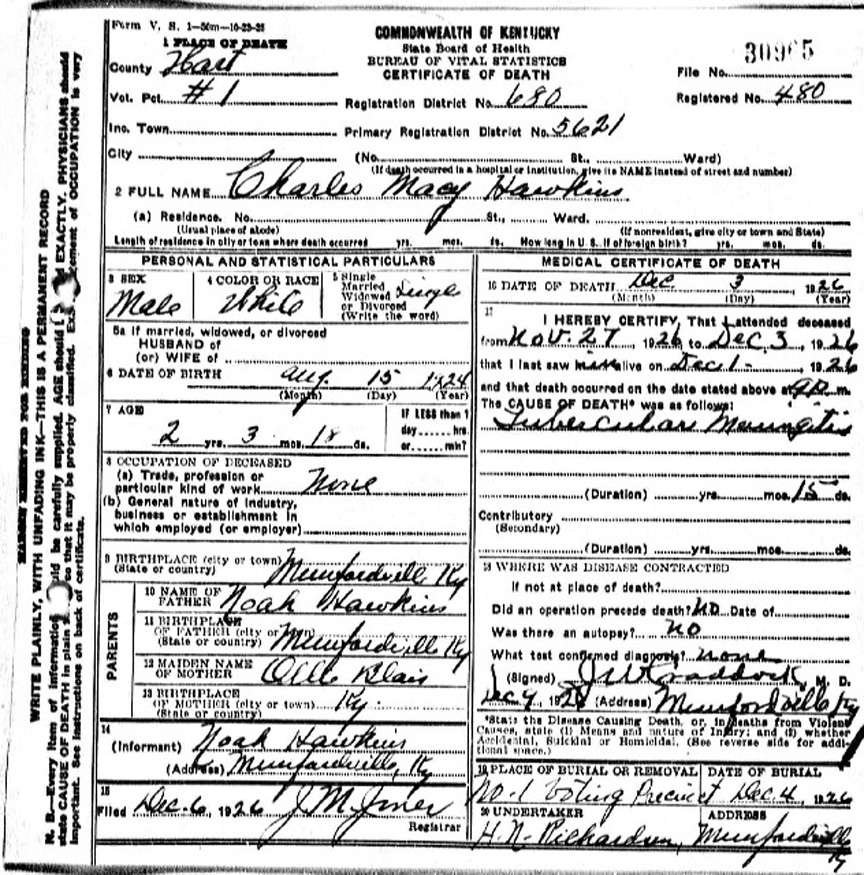 Form V. S. 1—50m—10-23-25
COMMONWEALTH OF KENTUCKY
State Board of Health
BUREAU OF VITAL STATISTICS
CERTIFICATE OF DEATH
1 PLACE OF DEATH
County Hart
File No. 30965
Vot. Pct. #1
Registration District No. 680
Registered No. 480
Inc. Town
Primary Registration District No. 5621
City (No. St., Ward)
(If death occurred in a hospital or institution, give its NAME instead of street and number)
2 FULL NAME Charles Macy Hawkins
(a) Residence. No. St., Ward.
(Usual place of abode) (If nonresident, give city or town and State)
Length of residence in city or town where death occurred yrs. mos. ds. How long in U. S. if of foreign birth? yrs. mos. ds.
PERSONAL AND STATISTICAL PARTICULARS
3 SEX Male
4 COLOR OR RACE White
5 Single Married Widowed or Divorced (Write the word) Single
5a If married, widowed, or divorced
HUSBAND of
(or) WIFE of
6 DATE OF BIRTH Aug. 15 1924
(Month) (Day) (Year)
7 AGE
2 yrs. 3 mos. 18 ds.
If LESS than 1
day hrs.
or min?
8 OCCUPATION OF DECEASED
(a) Trade, profession or
particular kind of work None
(b) General nature of industry,
business or establishment in
which employed (or employer)
9 BIRTHPLACE (city or town) Munfordville Ky
(State or country)
PARENTS
10 NAME OF FATHER Noah Hawkins
11 BIRTHPLACE OF FATHER (city or town) Munfordville Ky
(State or country)
12 MAIDEN NAME OF MOTHER Ollie Blair
13 BIRTHPLACE OF MOTHER (city or town) Ky.
(State or country)
14
(Informant) Noah Hawkins
(Address) Munfordville, Ky
15
Filed Dec-6, 1926 J M Joner
Registrar
MEDICAL CERTIFICATE OF DEATH
16 DATE OF DEATH Dec 3 1926
(Month) (Day) (Year)
17
I HEREBY CERTIFY, That I attended deceased
from Nov. 27, 1926 to Dec 3, 1926
that I last saw him alive on Dec 1-, 1926
and that death occurred on the date stated above at 9 P. m.
The CAUSE OF DEATH* was as follows:
Tubercular Meningitis
(Duration) yrs. mos. 15 ds.
Contributory
(Secondary)
(Duration) yrs. mos. ds.
18 WHERE WAS DISEASE CONTRACTED
If not at place of death?
Did an operation precede death? No Date of
Was there an autopsy? No
What test confirmed diagnosis? None
(Signed) J W Craddock, M. D.
Dec 4, 1926 (Address) Munfordville Ky
*State the Disease Causing Death, or, in deaths from Violent
Causes, state (1) Means and nature of Injury; and (2) whether
Accidental, Suicidal or Homicidal. (See reverse side for addi-
tional space.)
19 PLACE OF BURIAL OR REMOVAL No-1 Voting Precinct
DATE OF BURIAL Dec 4, 1926
20 UNDERTAKER H. N. Richardson,
ADDRESS Munfordville Ky
MARGIN RESERVED FOR BINDING
WRITE PLAINLY, WITH UNFADING INK—THIS IS A PERMANENT RECORD
N. B.—Every item of information should be carefully supplied. AGE should EXACTLY. PHYSICIANS should
state CAUSE OF DEATH in plain so that it may be properly classified. Statement of OCCUPATION is very
important. See instructions on back of certificate.